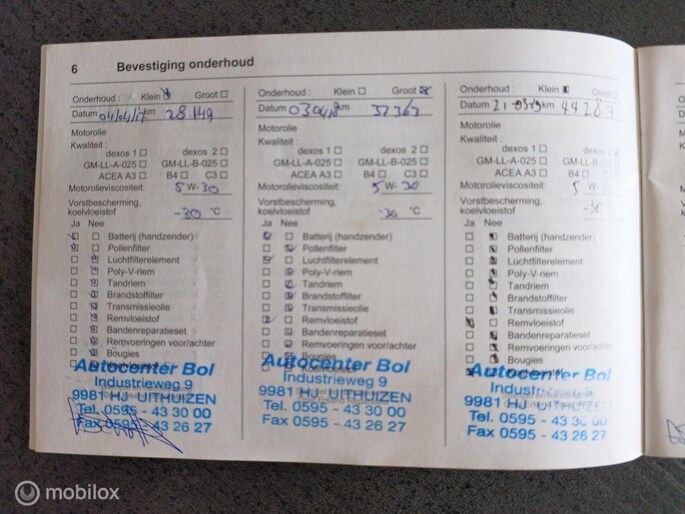 6 Bevestiging onderhoud
Onderhoud : Klein Groot
Datum 04/04/17 km 28.149
Motorolie
Kwaliteit :
dexos 1 dexos 2
GM-LL-A-025 GM-LL-B-025
ACEA A3 B4 C3
Motorolieviscositeit: 5 W- 30
Vorstbescherming,
koelvloeistof -30 °C
Ja Nee
Batterij (handzender)
Pollenfilter
Luchtfilterelement
Poly-V-riem
Tandriem
Brandstoffilter
Transmissieolie
Remvloeistof
Bandenreparatieset
Remvoeringen voor/achter
Bougies
Autocenter Bol
Industrieweg 9
9981 HJ UITHUIZEN
Tel. 0595 - 43 30 00
Fax 0595 - 43 26 27
Onderhoud : Klein Groot
Datum 030418 km 37363
Motorolie
Kwaliteit :
dexos 1 dexos 2
GM-LL-A-025 GM-LL-B-025
ACEA A3 B4 C3
Motorolieviscositeit: 5 W- 30
Vorstbescherming,
koelvloeistof -30 °C
Ja Nee
Batterij (handzender)
Pollenfilter
Luchtfilterelement
Poly-V-riem
Tandriem
Brandstoffilter
Transmissieolie
Remvloeistof
Bandenreparatieset
Remvoeringen voor/achter
Bougies
Autocenter Bol
Industrieweg 9
9981 HJ UITHUIZEN
Tel. 0595 - 43 30 00
Fax 0595 - 43 26 27
Onderhoud : Klein Groot
Datum 21-0319 km
Motorolie
Kwaliteit :
dexos 1 dexos 2
GM-LL-A-025 GM-LL-B-025
ACEA A3 B4 C3
Motorolieviscositeit: 5 W-
Vorstbescherming,
koelvloeistof
Ja Nee
Batterij (handzender)
Pollenfilter
Luchtfilterelement
Poly-V-riem
Tandriem
Brandstoffilter
Transmissieolie
Remvloeistof
Bandenreparatieset
Remvoeringen voor/achter
Bougies
Autocenter Bol
Industrieweg 9
9981 HJ UITHUIZEN
Tel. 0595 - 43 30 00
Fax 0595 - 43 26 27
mobilox